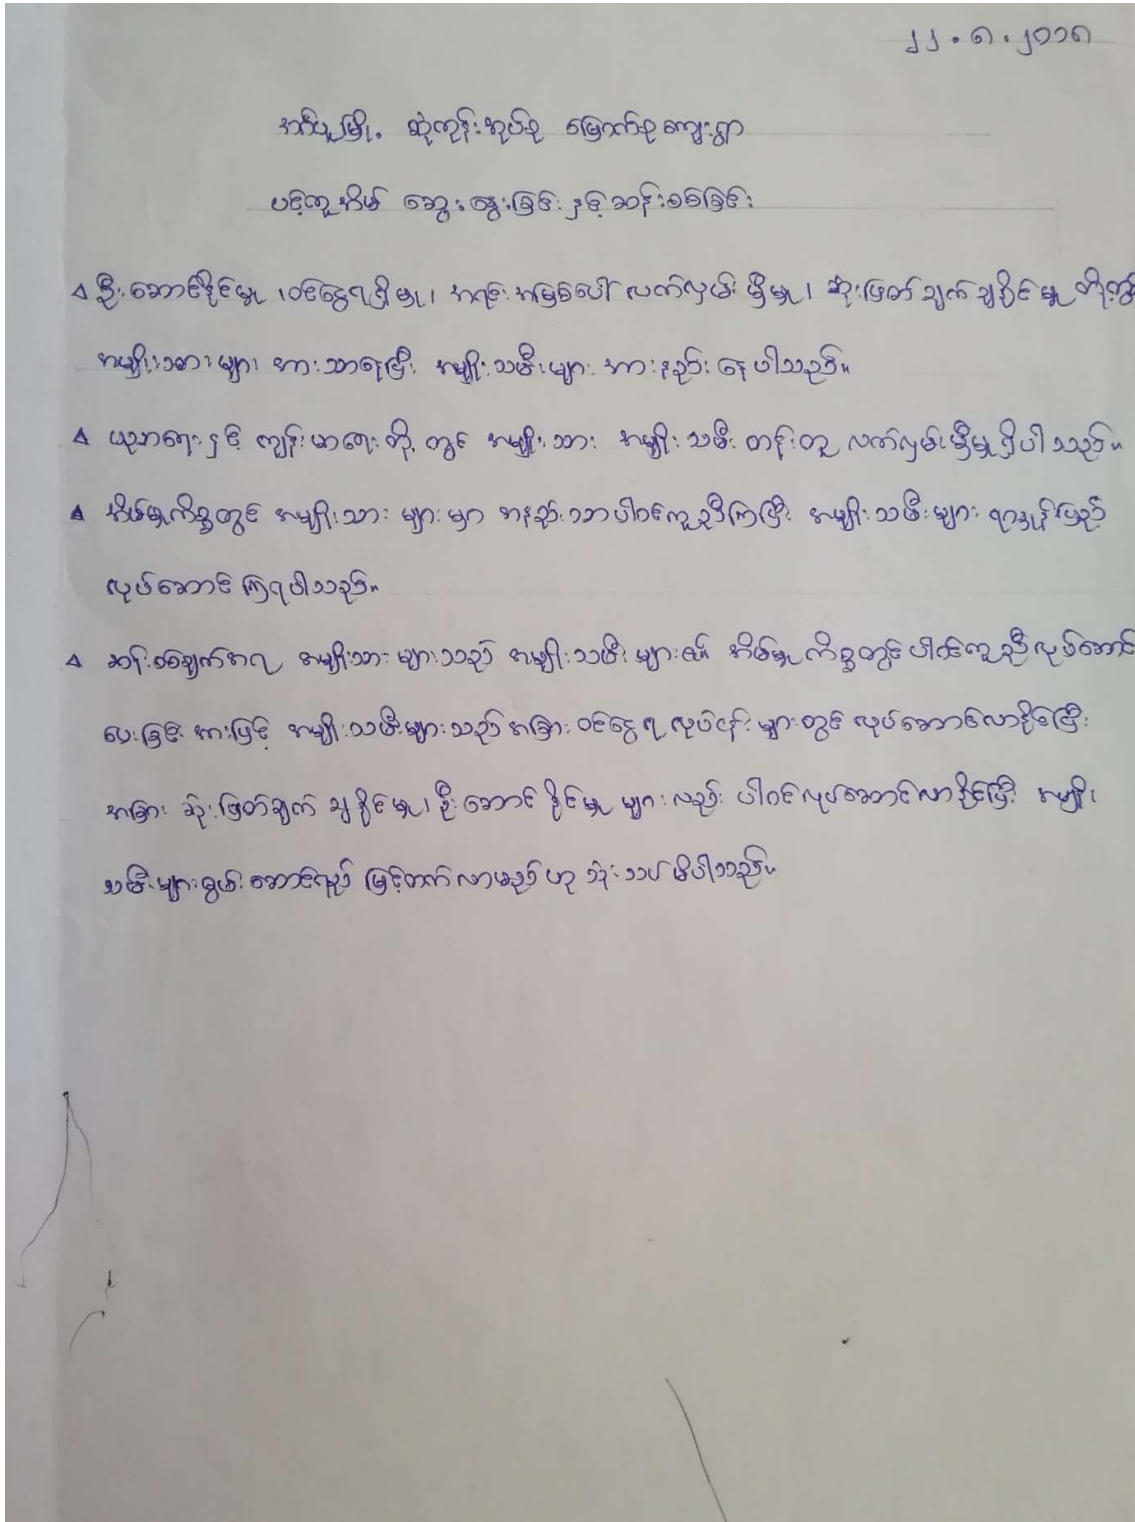 ၂၂.၈.၂၀၁၈
အင်္ဂပူမြို့ ဆုံကုန်းအုပ်စု မြောက်စုကျေးရွာ
ပင့်ကူအိမ် ဆွေးနွေးခြင်း နှင့် ဆန်းစစ်ခြင်း
ဦးဆောင်နိုင်မှု ၊ ဝင်ငွေရရှိမှု ၊ အရင်းအမြစ်ပေါ် လက်လှမ်းမှီမှု ၊ ဆုံးဖြတ်ချက်ချနိုင်မှု တို့တွင်
အမျိုးသားများ အားသာနေပြီး အမျိုးသမီးများ အားနည်းနေပါသည်။
ပညာရေးနှင့် ကျန်းမာရေးတို့တွင် အမျိုးသား အမျိုးသမီး တန်းတူ လက်လှမ်းမှီမှု ရှိပါသည်။
အိမ်မှုကိစ္စတွင် အမျိုးသားများမှာ အနည်းသာပါဝင်ကူညီကြပြီး အမျိုးသမီးများ ရာနှုန်းပြည့်
လုပ်ဆောင်ကြရပါသည်။
ဆန်းစစ်ချက်အရ အမျိုးသားများသည် အမျိုးသမီးများ၏ အိမ်မှုကိစ္စတွင် ပါဝင်ကူညီလုပ်ဆောင်
ပေးခြင်းအားဖြင့် အမျိုးသမီးများသည် အခြားဝင်ငွေရ လုပ်ငန်းများတွင် လုပ်ဆောင်လာနိုင်ပြီး
အခြား ဆုံးဖြတ်ချက် ချနိုင်မှု ၊ ဦးဆောင်နိုင်မှုများလည်း ပါဝင်လုပ်ဆောင်လာနိုင်ပြီး အမျိုး
သမီးများစွမ်းဆောင်ရည် မြင့်တက်လာမည်ဟု သုံးသပ်မိပါသည်။